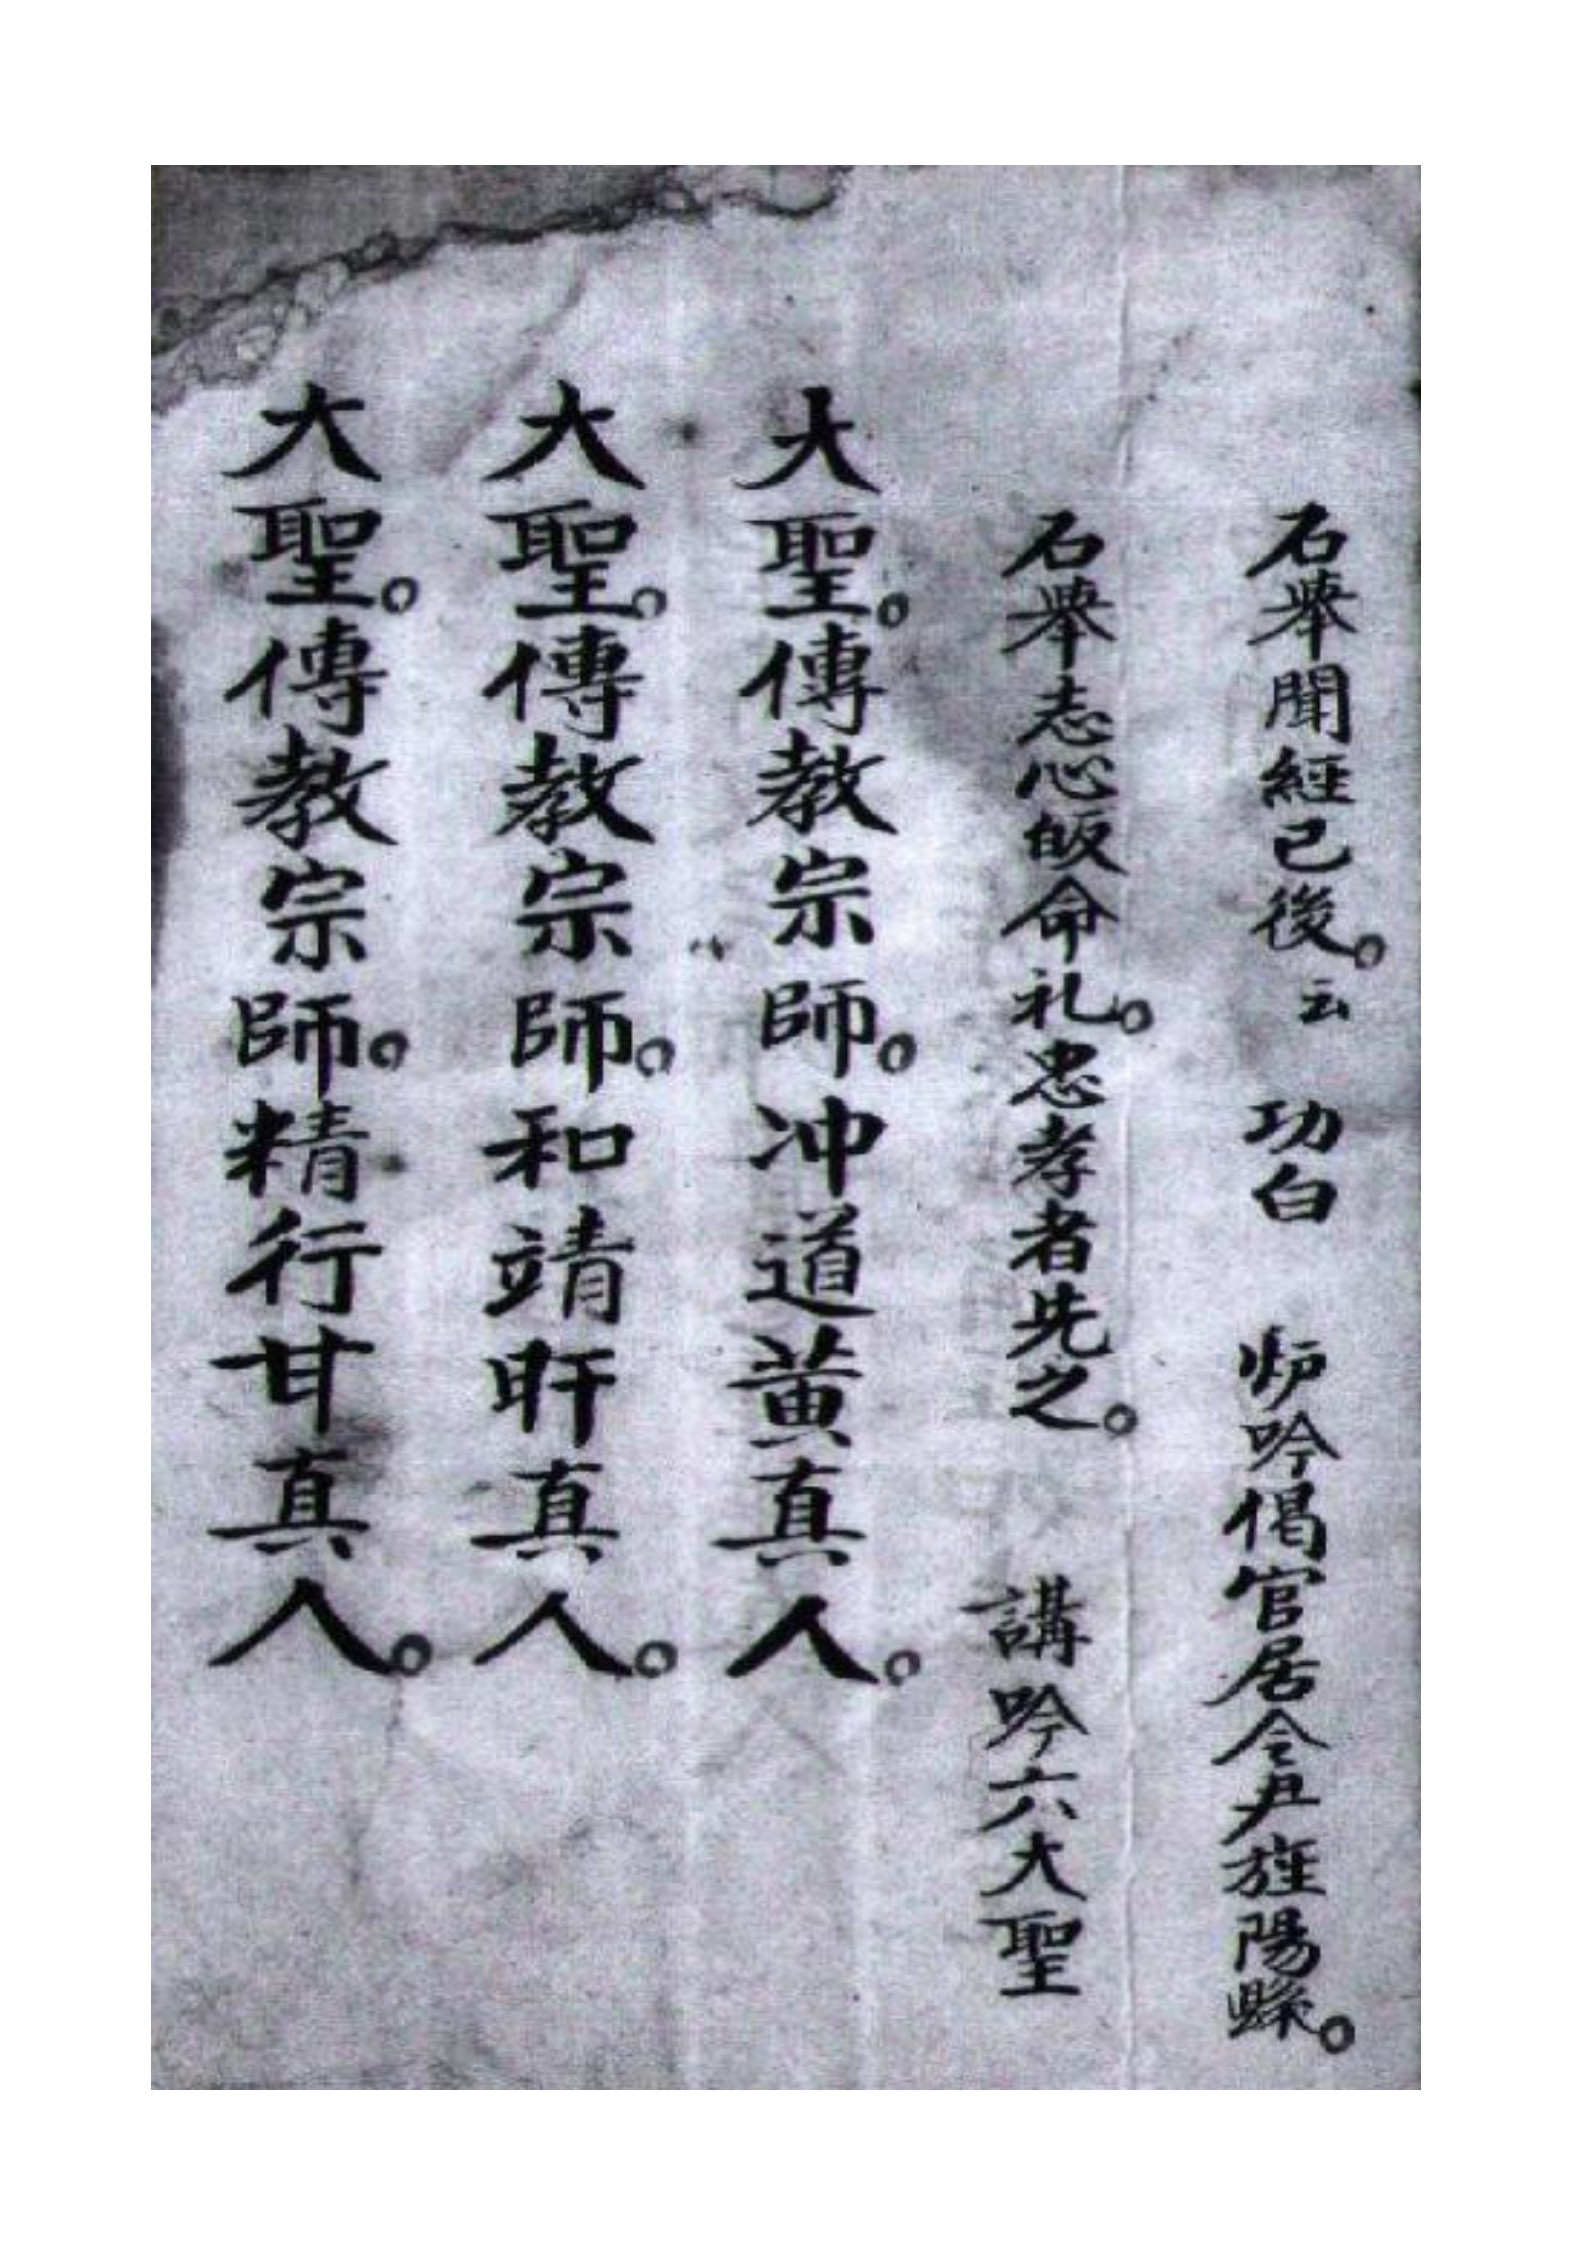 石舉聞經已後。云 功白 炉吟偈官居令尹旌陽縣。
石舉志心皈命礼。忠孝者先之。 講吟六大聖
大聖。傳教宗師。冲道黄真人。
大聖。傳教宗師。和靖盱真人。
大聖。傳教宗師。精行甘真人。